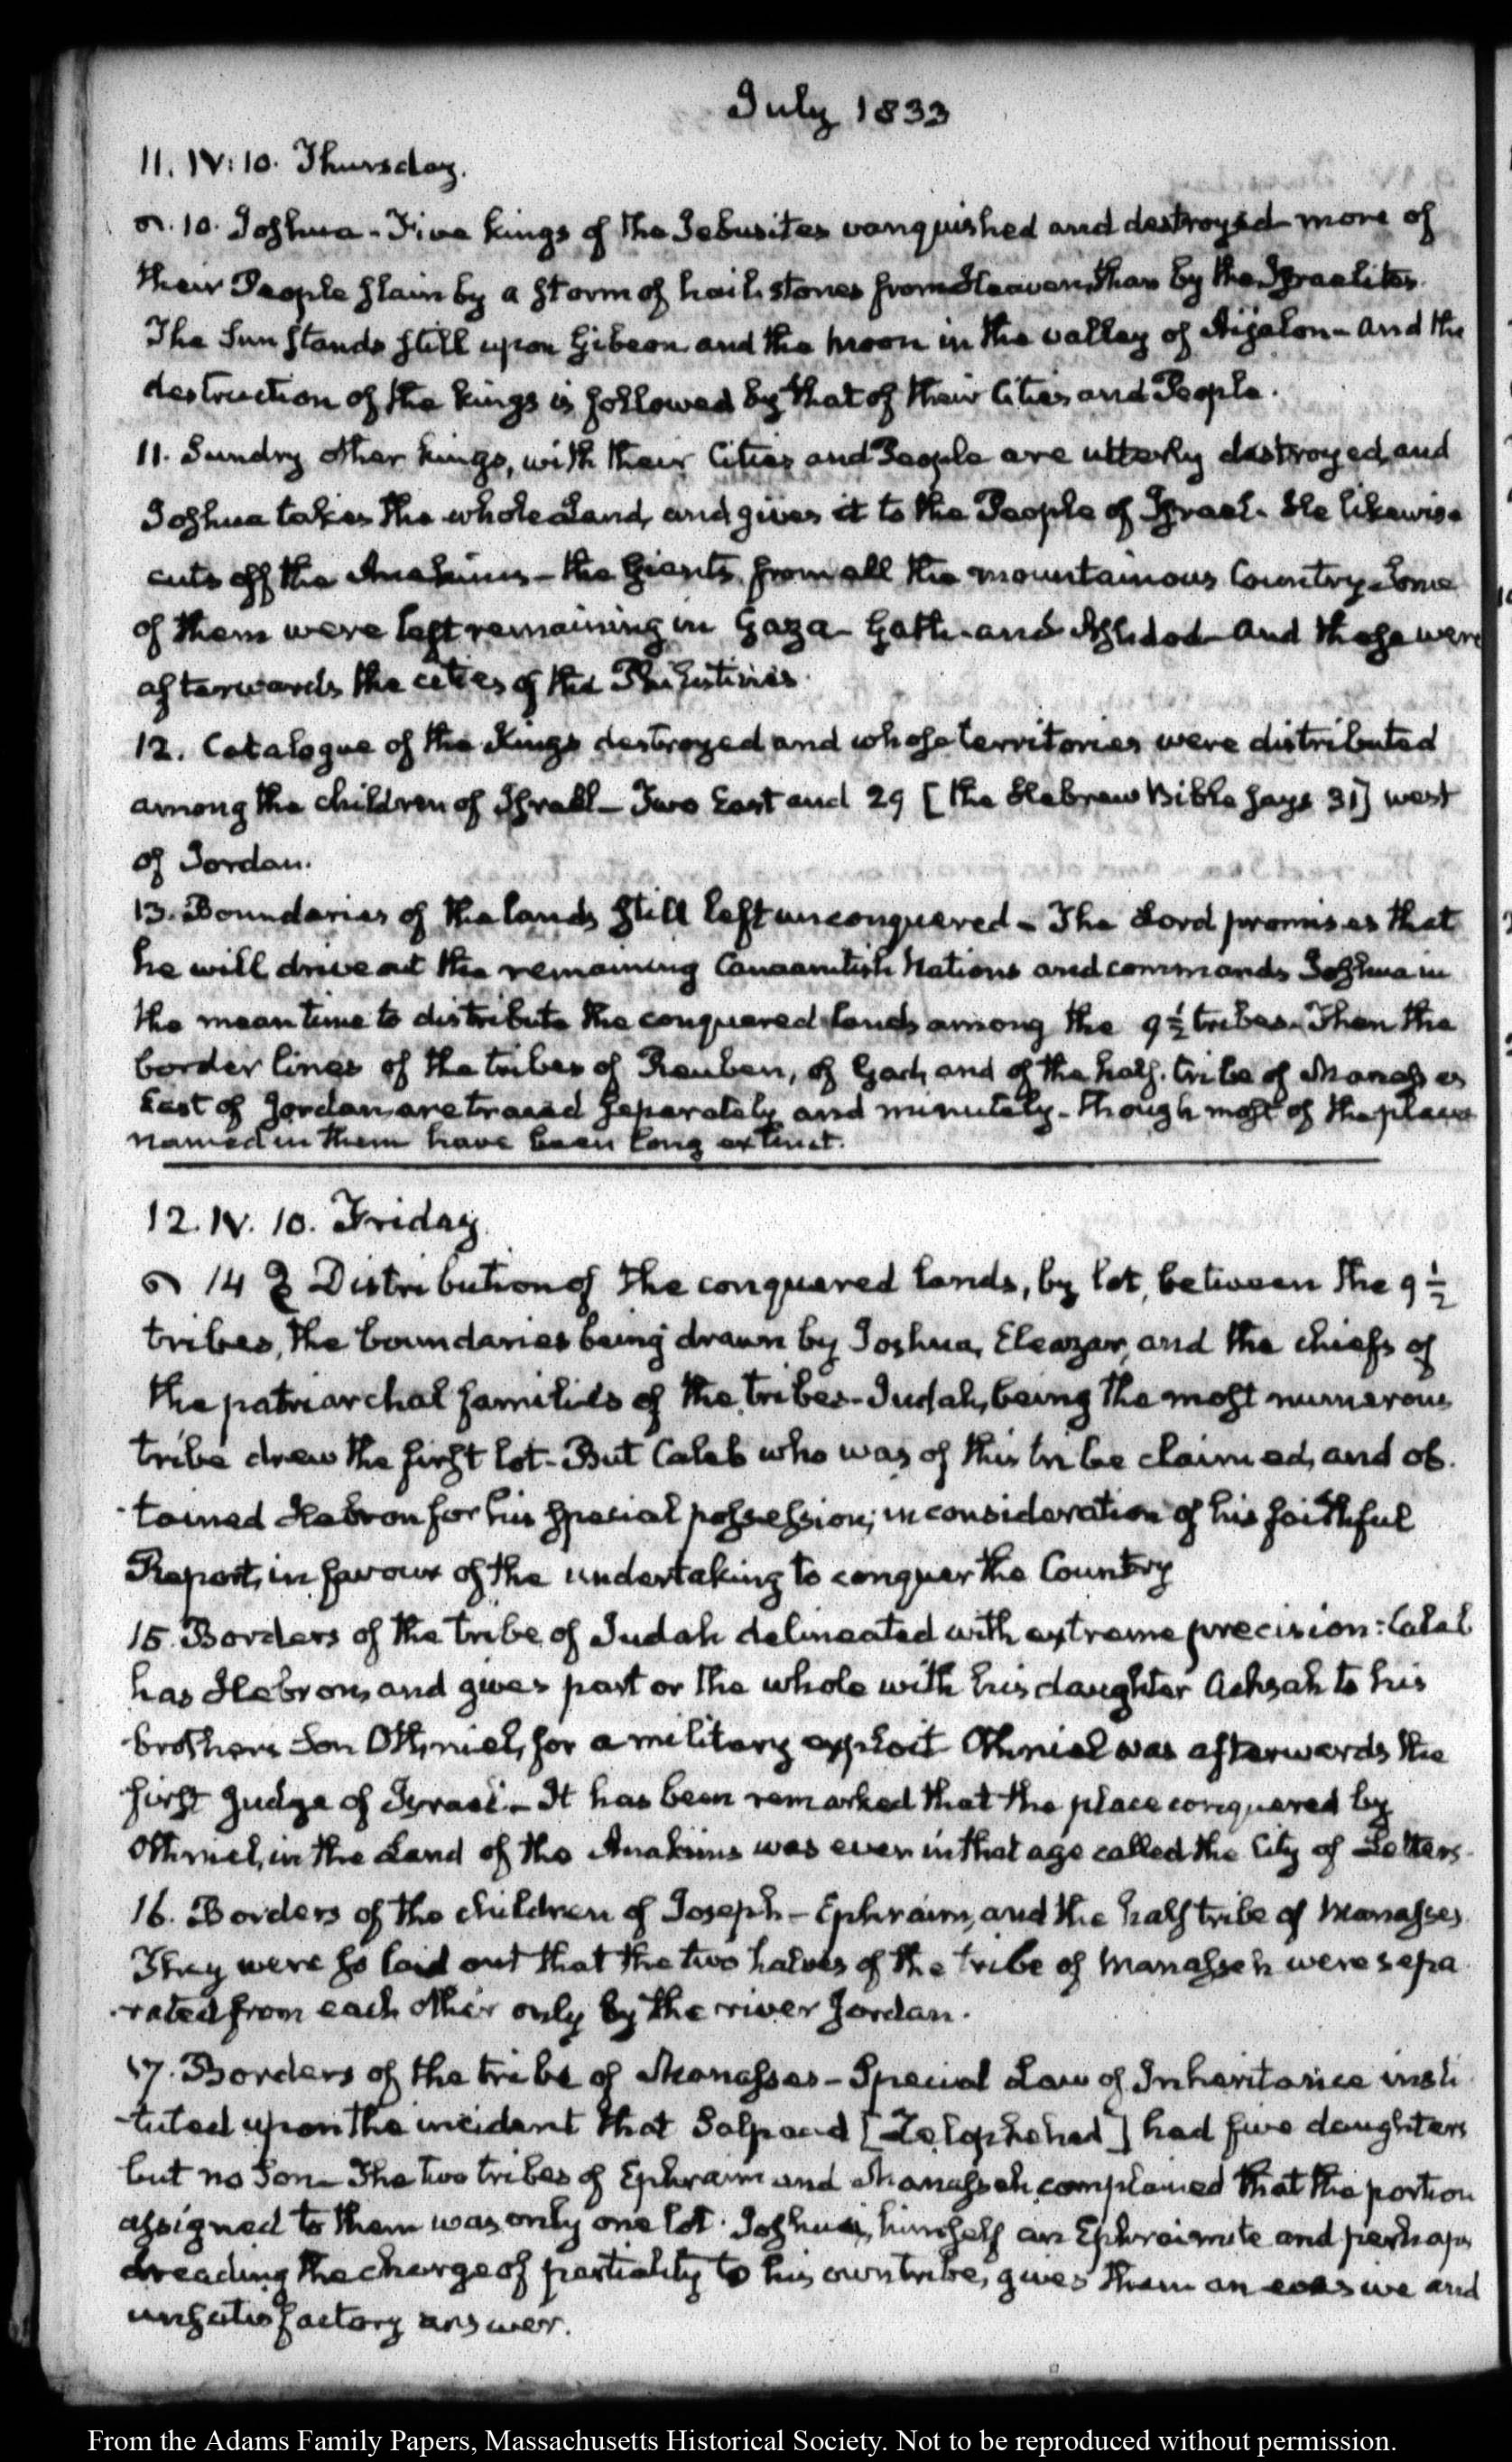 July 1833
11. IV:10. Thursday.
10. Joshua - Five kings of the Jebusites vanquished and destroyed more of
their People slain by a storm of hail stones from Heaven, than by the Israelites.
The Sun stands still upon Gibeon and the moon in the valley of Aijalon - and the
destruction of the kings is followed by that of their Cities and People.
11. Sundry other kings, with their Cities and People are utterly destroyed, and
Joshua takes the whole Land, and gives it to the People of Israel. He likewise
cuts off the Anakims - the Giants, from all the mountainous Country - Some
of them were left remaining in Gaza - Gath - and Ashdod - and these were
afterwards the cities of the Philistines.
12. Catalogue of the Kings destroyed and whose territories were distributed
among the children of Israel - Two East and 29 [the Hebrew Bible says 31] west
of Jordan.
13. Boundaries of the lands still left unconquered - The Lord promises that
he will drive out the remaining Canaanitish Nations and commands Joshua in
the mean time to distribute the conquered lands among the 9 ½ tribes. Then the
border lines of the tribes of Reuben, of Gad, and of the half. tribe of Manasses
East of Jordan, are traced separately and minutely - though most of the places
named in them have been long extinct.
12. IV. 10. Friday
14 Distribution of the conquered lands, by lot, between the 9 ½
tribes, the boundaries being drawn by Joshua, Eleazar, and the chiefs of
the patriarchal families of the tribes - Judah, being the most numerous
tribe drew the first lot - But Caleb who was of this tribe claimed, and ob-
-tained Hebron for his special possession; in consideration of his faithful
Report, in favour of the undertaking to conquer the Country
15. Borders of the tribe of Judah delineated with extreme precision: Caleb
has Hebron, and gives part or the whole with his daughter Achsah to his
brothers Son Othniel, for a military exploit Othniel was afterwards the
first Judge of Israel - It has been remarked that the place conquered by
Othniel, in the Land of the Anakims was even in that age called the City of Letters.
16. Borders of the children of Joseph - Ephraim, and the half tribe of Manasses.
They were so laid out that the two halves of the tribe of Manasseh were sepa
-rated from each other only by the river Jordan.
17. Borders of the tribe of Manasses - Special Law of Inheritance insti
-tuted upon the incident that Salpaad [Zelophehad] had five daughters
but no Son - The two tribes of Ephraim and Manasseh complained that the portion
assigned to them was only one lot. Joshua, himself an Ephraimite and perhaps
dreading the charge of partiality to his own tribe, gives them an evasive and
unsatisfactory answer.
From the Adams Family Papers, Massachusetts Historical Society. Not to be reproduced without permission.